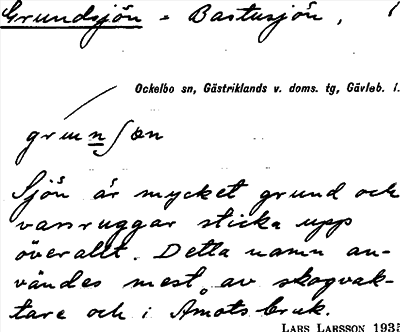 Grundsjön = Bastusjön,
Ockelbo sn, Gästriklands v. doms. tg, Gävleb. l.
grunʃøn
Sjön är mycket grund och
vassruggar sticka upp
överallt. Detta namn an-
vändes mest av skogvak-
tare och i Åmots bruk.
LARS LARSSON 1935